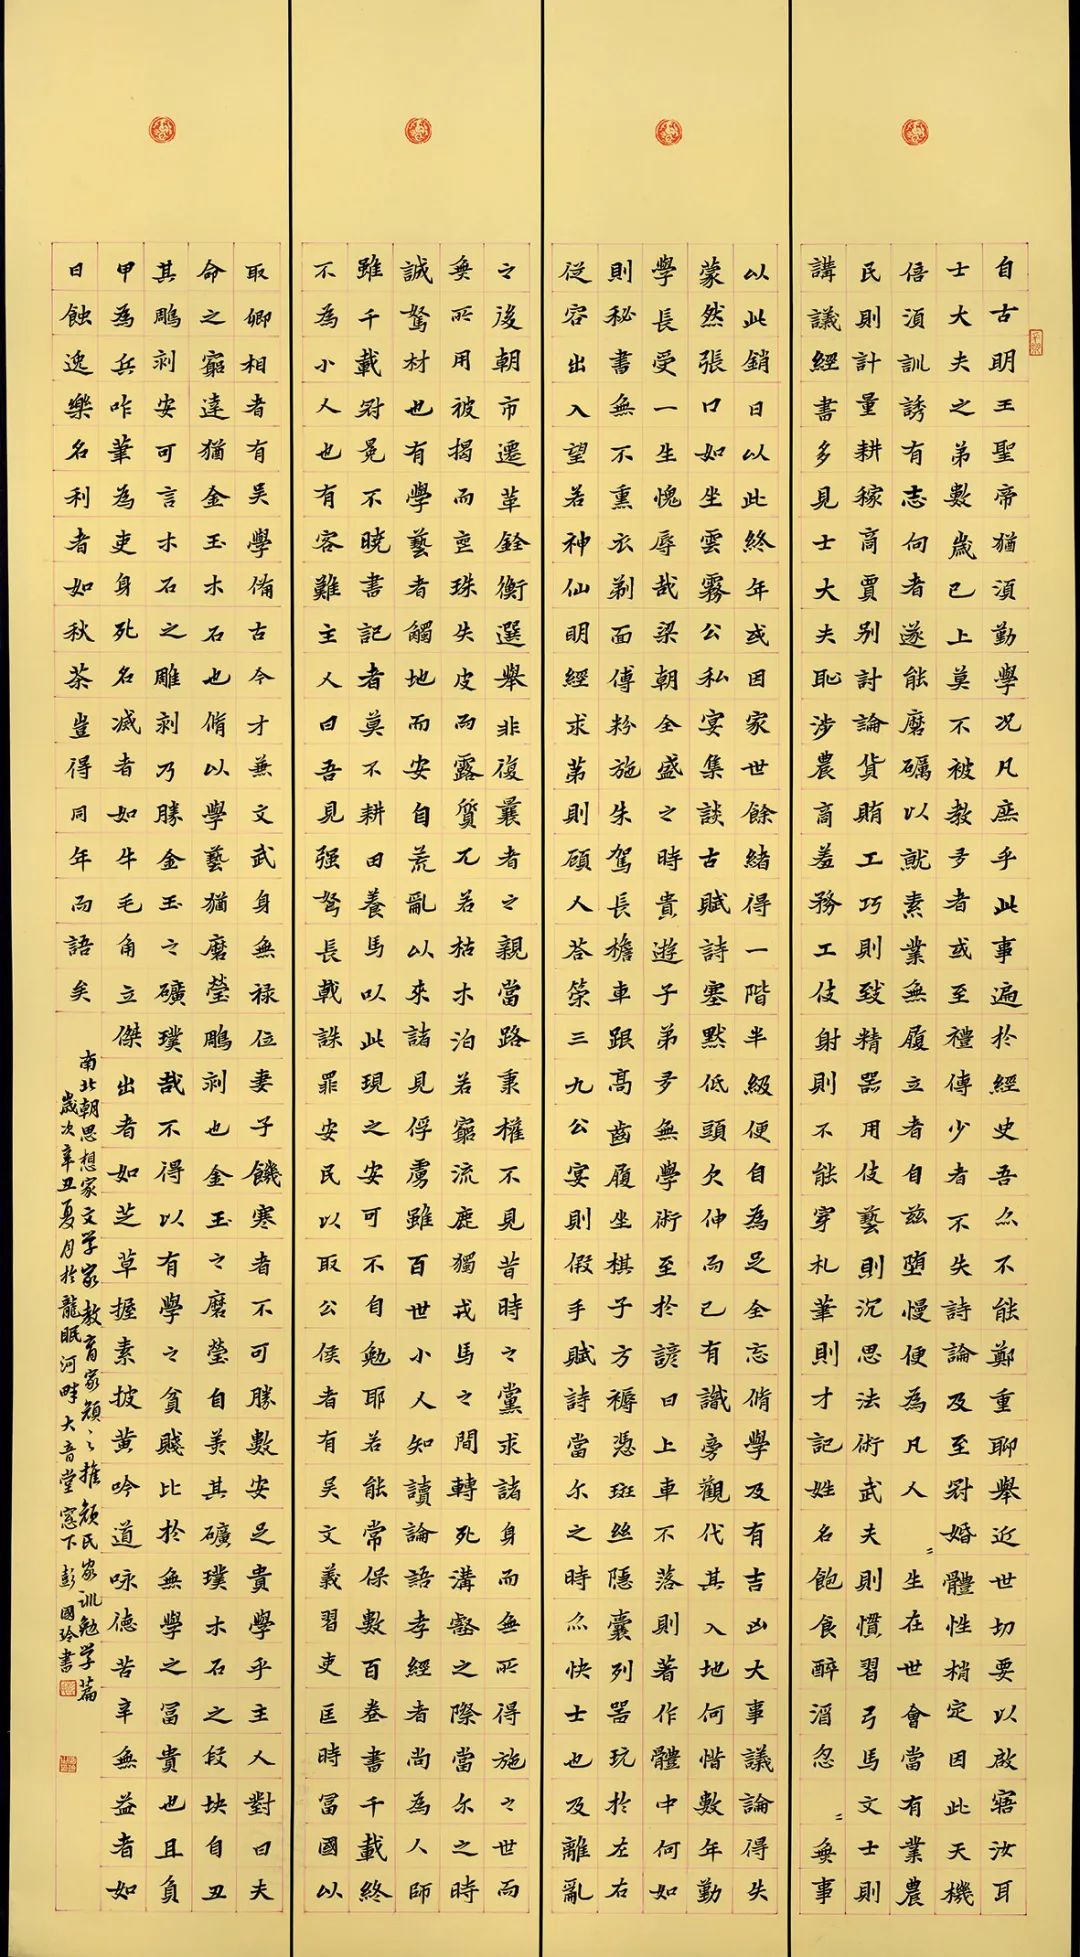 自古明王聖帝猶湏勤學况凡庶乎此事遍於經史吾亦不能鄭重聊舉近世切要以啟寤汝耳
士大夫之弟數歲已上莫不被教多者或至禮傳少者不失詩論及至冠婚體性梢定因此天機
倍湏訓誘有志向者遂能磨礪以就素業無履立者自茲堕慢便為凡人〻生在世會當有業農
民則計量耕稼商賈别討論貨賄工巧則致精器用伎藝則沉思法術武夫則慣習弓馬文士則
講議經書多見士大夫恥涉農商羞務工伎射則不能穿札筆則才記姓名飽食醉酒忽〻無事
以此銷日以此終年或因家世餘緒得一階半級便自為足全忘脩學及有吉凶大事議論得失
蒙然張口如坐雲霧公私宴集談古賦詩塞默低頭欠伸而已有識旁觀代其入地何惜數年勤
學長受一生愧辱哉梁朝全盛之時貴遊子弟多無學術至於諺曰上車不落則著作體中何如
則秘書無不熏衣剃面傅粉施朱駕長檐車跟高齒履坐棋子方褥憑斑丝隱囊列器玩於左右
従容出入望若神仙明經求第則顧人荅策三九公宴則假手賦詩當尔之時亦快士也及離亂
之後朝市遷革銓衡選舉非復曩者之親當路秉權不見昔時之黨求諸身而無所得施之世而
無所用被揭而喪珠失皮而露質兀若枯木泊若窮流鹿獨戎馬之間轉死溝壑之際當尔之時
誠駑材也有學藝者觸地而安自荒亂以來諸見俘虜雖百世小人知讀論語孝經者尚為人師
雖千載冠冕不曉書記者莫不耕田養馬以此現之安可不自勉耶若能常保數百卷書千載終
不為小人也有客難主人曰吾見强弩長戟誅罪安民以取公侯者有吴文義習吏匡時富國以
取卿相者有吴學備古今才兼文武身無禄位妻子饑寒者不可勝數安足貴學乎主人對曰夫
命之窮達猶金玉木石也脩以學藝猶磨瑩鵰刻也金玉之磨瑩自美其礦璞木石之段块自丑
其鵰刻安可言木石之雕刻乃勝金玉之礦璞哉不得以有學之貧賤比於無學之富貴也且負
甲為兵咋筆為吏身死名滅者如牛毛角立傑出者如芝草握素披黄吟道咏德苦辛無益者如
日蝕逸樂名利者如秋荼豈得同年而語矣
南北朝思想家文学家教育家颜之推颜氏家训勉学篇
歲次辛丑夏月於龍眠河畔大音堂窓下彭國玲書